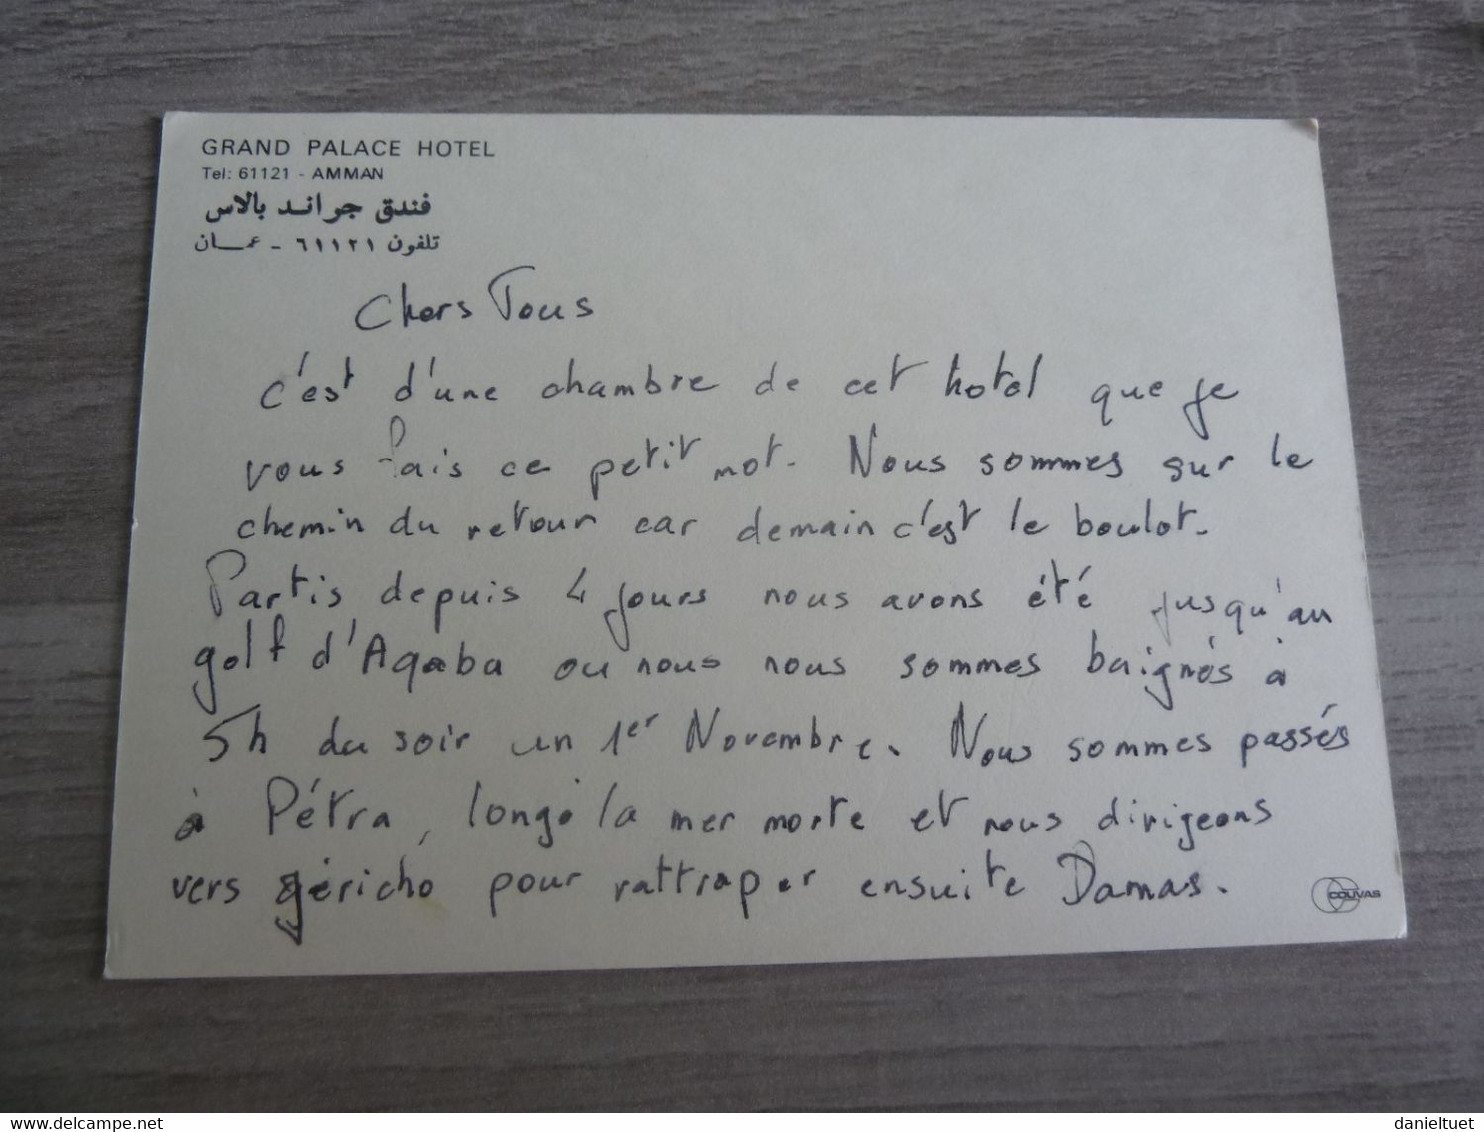 GRAND PALACE HOTEL
Tel: 61121 - AMMAN
فندق جراند بالاس
تلفون ٦١١٢١ - عمان
Chers Tous
c'est d'une chambre de cet hotel que je
vous fais ce petit mot. Nous sommes sur le
chemin du retour car demain c'est le boulot.
Partis depuis 4 jours nous avons été jusqu'au
golf d'Aqaba ou nous nous sommes baignés à
5h du soir un 1er Novembre. Nous sommes passés
à Pétra, longé la mer morte et nous dirigeons
vers jéricho pour rattraper ensuite Damas.
COUVAS
delcampe.net
danieltuet